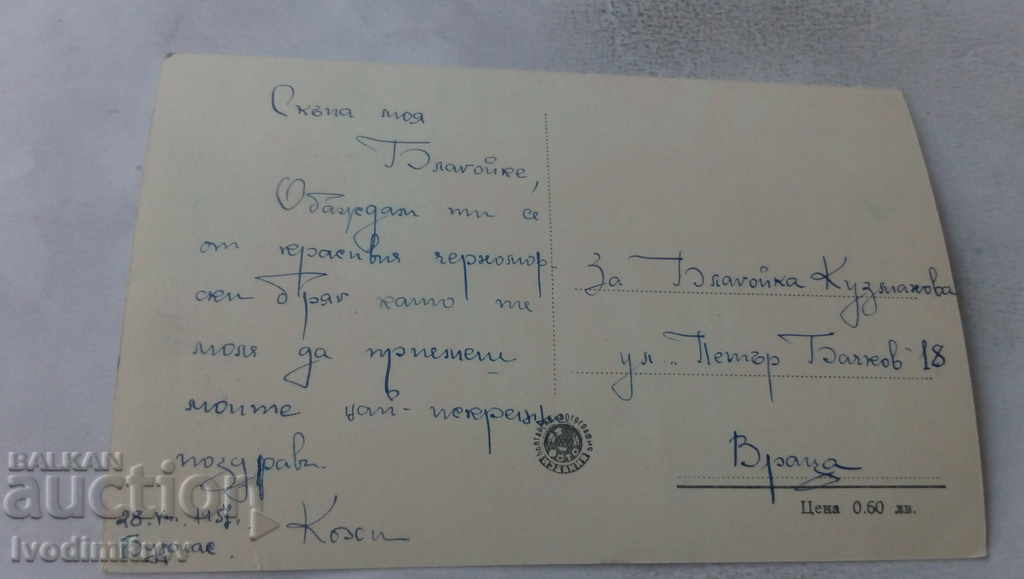 Скъпа моя
Благойке,
Обаждам ти се
от красивия черномор
ски бряг като те
моля да приемеш
моите най-искрени
поздрави.
28. 
Бургас.
За Благойка Кузманова
ул. "Петър Бачков" 18
Враца
Цена 0.60 лв.
BALKAN
auction
Ivodimitrov